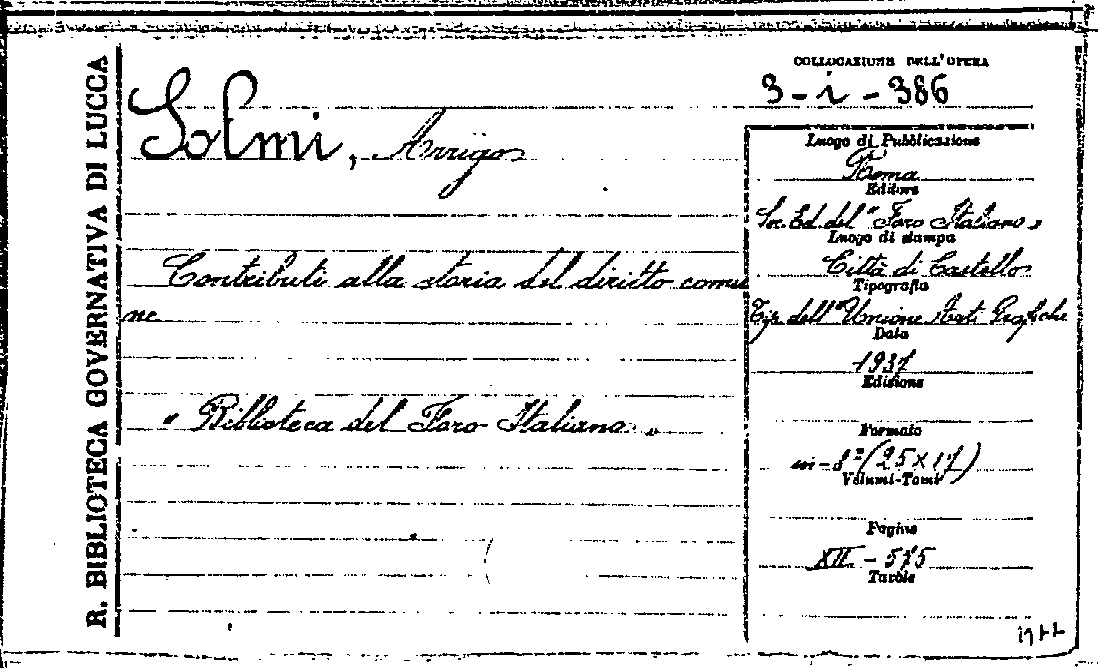 R. BIBLIOTECA GOVERNATIVA DI LUCCA
COLLOCAZIONE DELL'OPERA
3-i-386
Solmi, Arrigo
Contributi alla storia del diritto comu
ne
« Biblioteca del Foro Italiano »
Luogo di Pubblicazione
Roma
Editore
Soc. Ed. del "Foro Italiano"
Luogo di stampa
Città di Castello
Tipografia
Tip. dell'Unione Arti Grafiche
Data
1937
Edizione
Formato
in-8º (25×17)
Volumi-Tomi
Pagine
XII - 575
Tavole